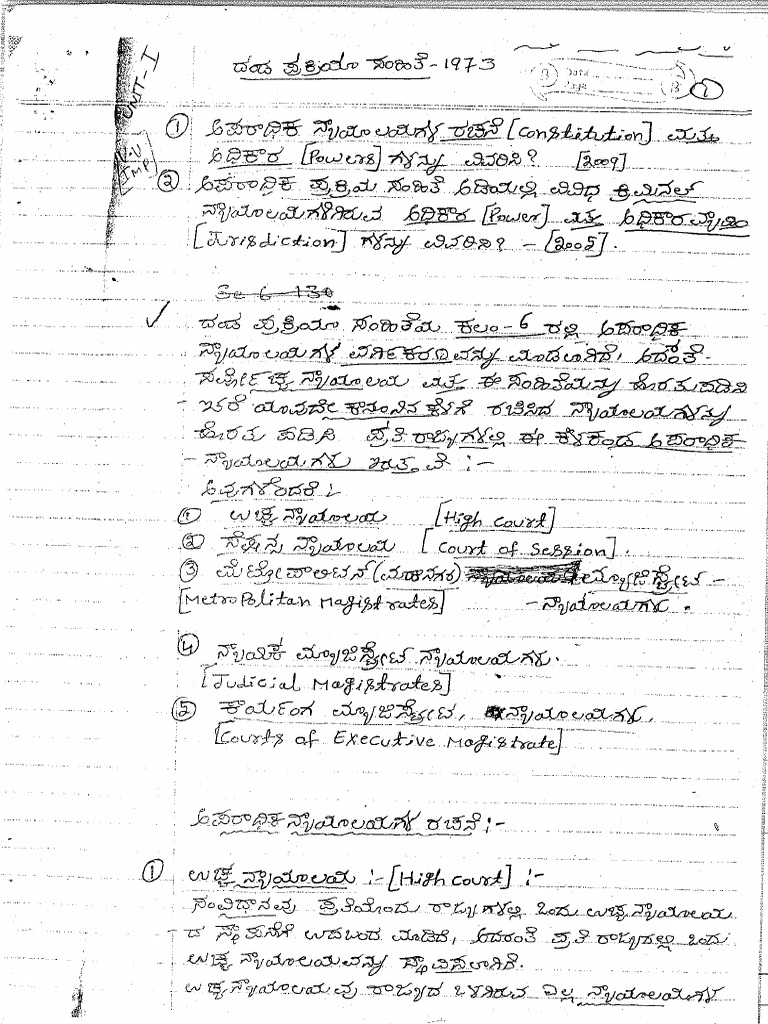 ದಂಡ ಪ್ರಕ್ರಿಯಾ ಸಂಹಿತೆ - 1973
UNIT-I
V.V
IMP
① ಅಪರಾಧಿಕ ನ್ಯಾಯಾಲಯಗಳ ರಚನೆ [Constitution] ಮತ್ತು
ಅಧಿಕಾರ [Powers] ಗಳನ್ನು ವಿವರಿಸಿ? [2009]
② ಅಪರಾಧಿಕ ಪ್ರಕ್ರಿಯ ಸಂಹಿತೆ ಅಡಿಯಲ್ಲಿ ವಿವಿಧ ಕ್ರಿಮಿನಲ್
ನ್ಯಾಯಾಲಯಗಳಿಗಿರುವ ಅಧಿಕಾರ [Power] ಮತ್ತು ಅಧಿಕಾರ ವ್ಯಾಪ್ತಿ
[Jurisdiction] ಗಳನ್ನು ವಿವರಿಸಿ? - [2005].
ದಂಡ ಪ್ರಕ್ರಿಯಾ ಸಂಹಿತೆಯ ಕಲಂ-6 ರಲ್ಲಿ ಅಪರಾಧಿಕ
ನ್ಯಾಯಾಲಯಗಳ ವರ್ಗಿಕರಣವನ್ನು ಮಾಡಲಾಗಿದೆ, ಅದರಂತೆ-
ಸರ್ವೋಚ್ಚ ನ್ಯಾಯಾಲಯ ಮತ್ತು ಈ ಸಂಹಿತೆಯನ್ನು ಹೊರತುಪಡಿಸಿ
ಇತರೆ ಯಾವುದೇ ಕಾನೂನಿನ ಕೆಳಗೆ ರಚಿಸಿದ ನ್ಯಾಯಾಲಯಗಳನ್ನು
ಹೊರತು ಪಡಿಸಿ ಪ್ರತಿ ರಾಜ್ಯಗಳಲ್ಲಿ ಈ ಕೆಳಕಂಡ ಅಪರಾಧಿಕ
- ನ್ಯಾಯಾಲಯಗಳು ಇರುತ್ತವೆ :-
ಅವುಗಳೆಂದರೆ :-
① ಉಚ್ಚ ನ್ಯಾಯಾಲಯ [High Court]
② ಸೆಷನ್ಸ ನ್ಯಾಯಾಲಯ [Court of Session].
③ ಮೆಟ್ರೋಪಾಲಿಟನ್ (ಮಹಾನಗರ) ಮ್ಯಾಜಿಸ್ಟ್ರೇಟ -
[Metropolitan Magistrates] - ನ್ಯಾಯಾಲಯಗಳು.
④ ನ್ಯಾಯಿಕ ಮ್ಯಾಜಿಸ್ಟ್ರೇಟ ನ್ಯಾಯಾಲಯಗಳು.
[Judicial Magistrates]
⑤ ಕಾರ್ಯಾಂಗ ಮ್ಯಾಜಿಸ್ಟ್ರೇಟ, ನ್ಯಾಯಾಲಯಗಳು.
[Courts of Executive Magistrate]
ಅಪರಾಧಿಕ ನ್ಯಾಯಾಲಯಗಳ ರಚನೆ :-
① ಉಚ್ಚ ನ್ಯಾಯಾಲಯ :- [High Court] :-
ಸಂವಿಧಾನವು ಪ್ರತಿಯೊಂದು ರಾಜ್ಯಗಳಲ್ಲಿ ಒಂದು ಉಚ್ಚ ನ್ಯಾಯಾಲಯ
ದ ಸ್ಥಾಪನೆಗೆ ಉಪಬಂದ ಮಾಡಿದೆ, ಅದರಂತೆ ಪ್ರತಿ ರಾಜ್ಯದಲ್ಲಿ ಒಂದು
ಉಚ್ಚ ನ್ಯಾಯಾಲಯವನ್ನು ಸ್ಥಾಪಿಸಲಾಗಿದೆ.
ಉಚ್ಚ ನ್ಯಾಯಾಲಯವು ರಾಜ್ಯದ ಒಳಗಿರುವ ಎಲ್ಲ ನ್ಯಾಯಾಲಯಗಳ